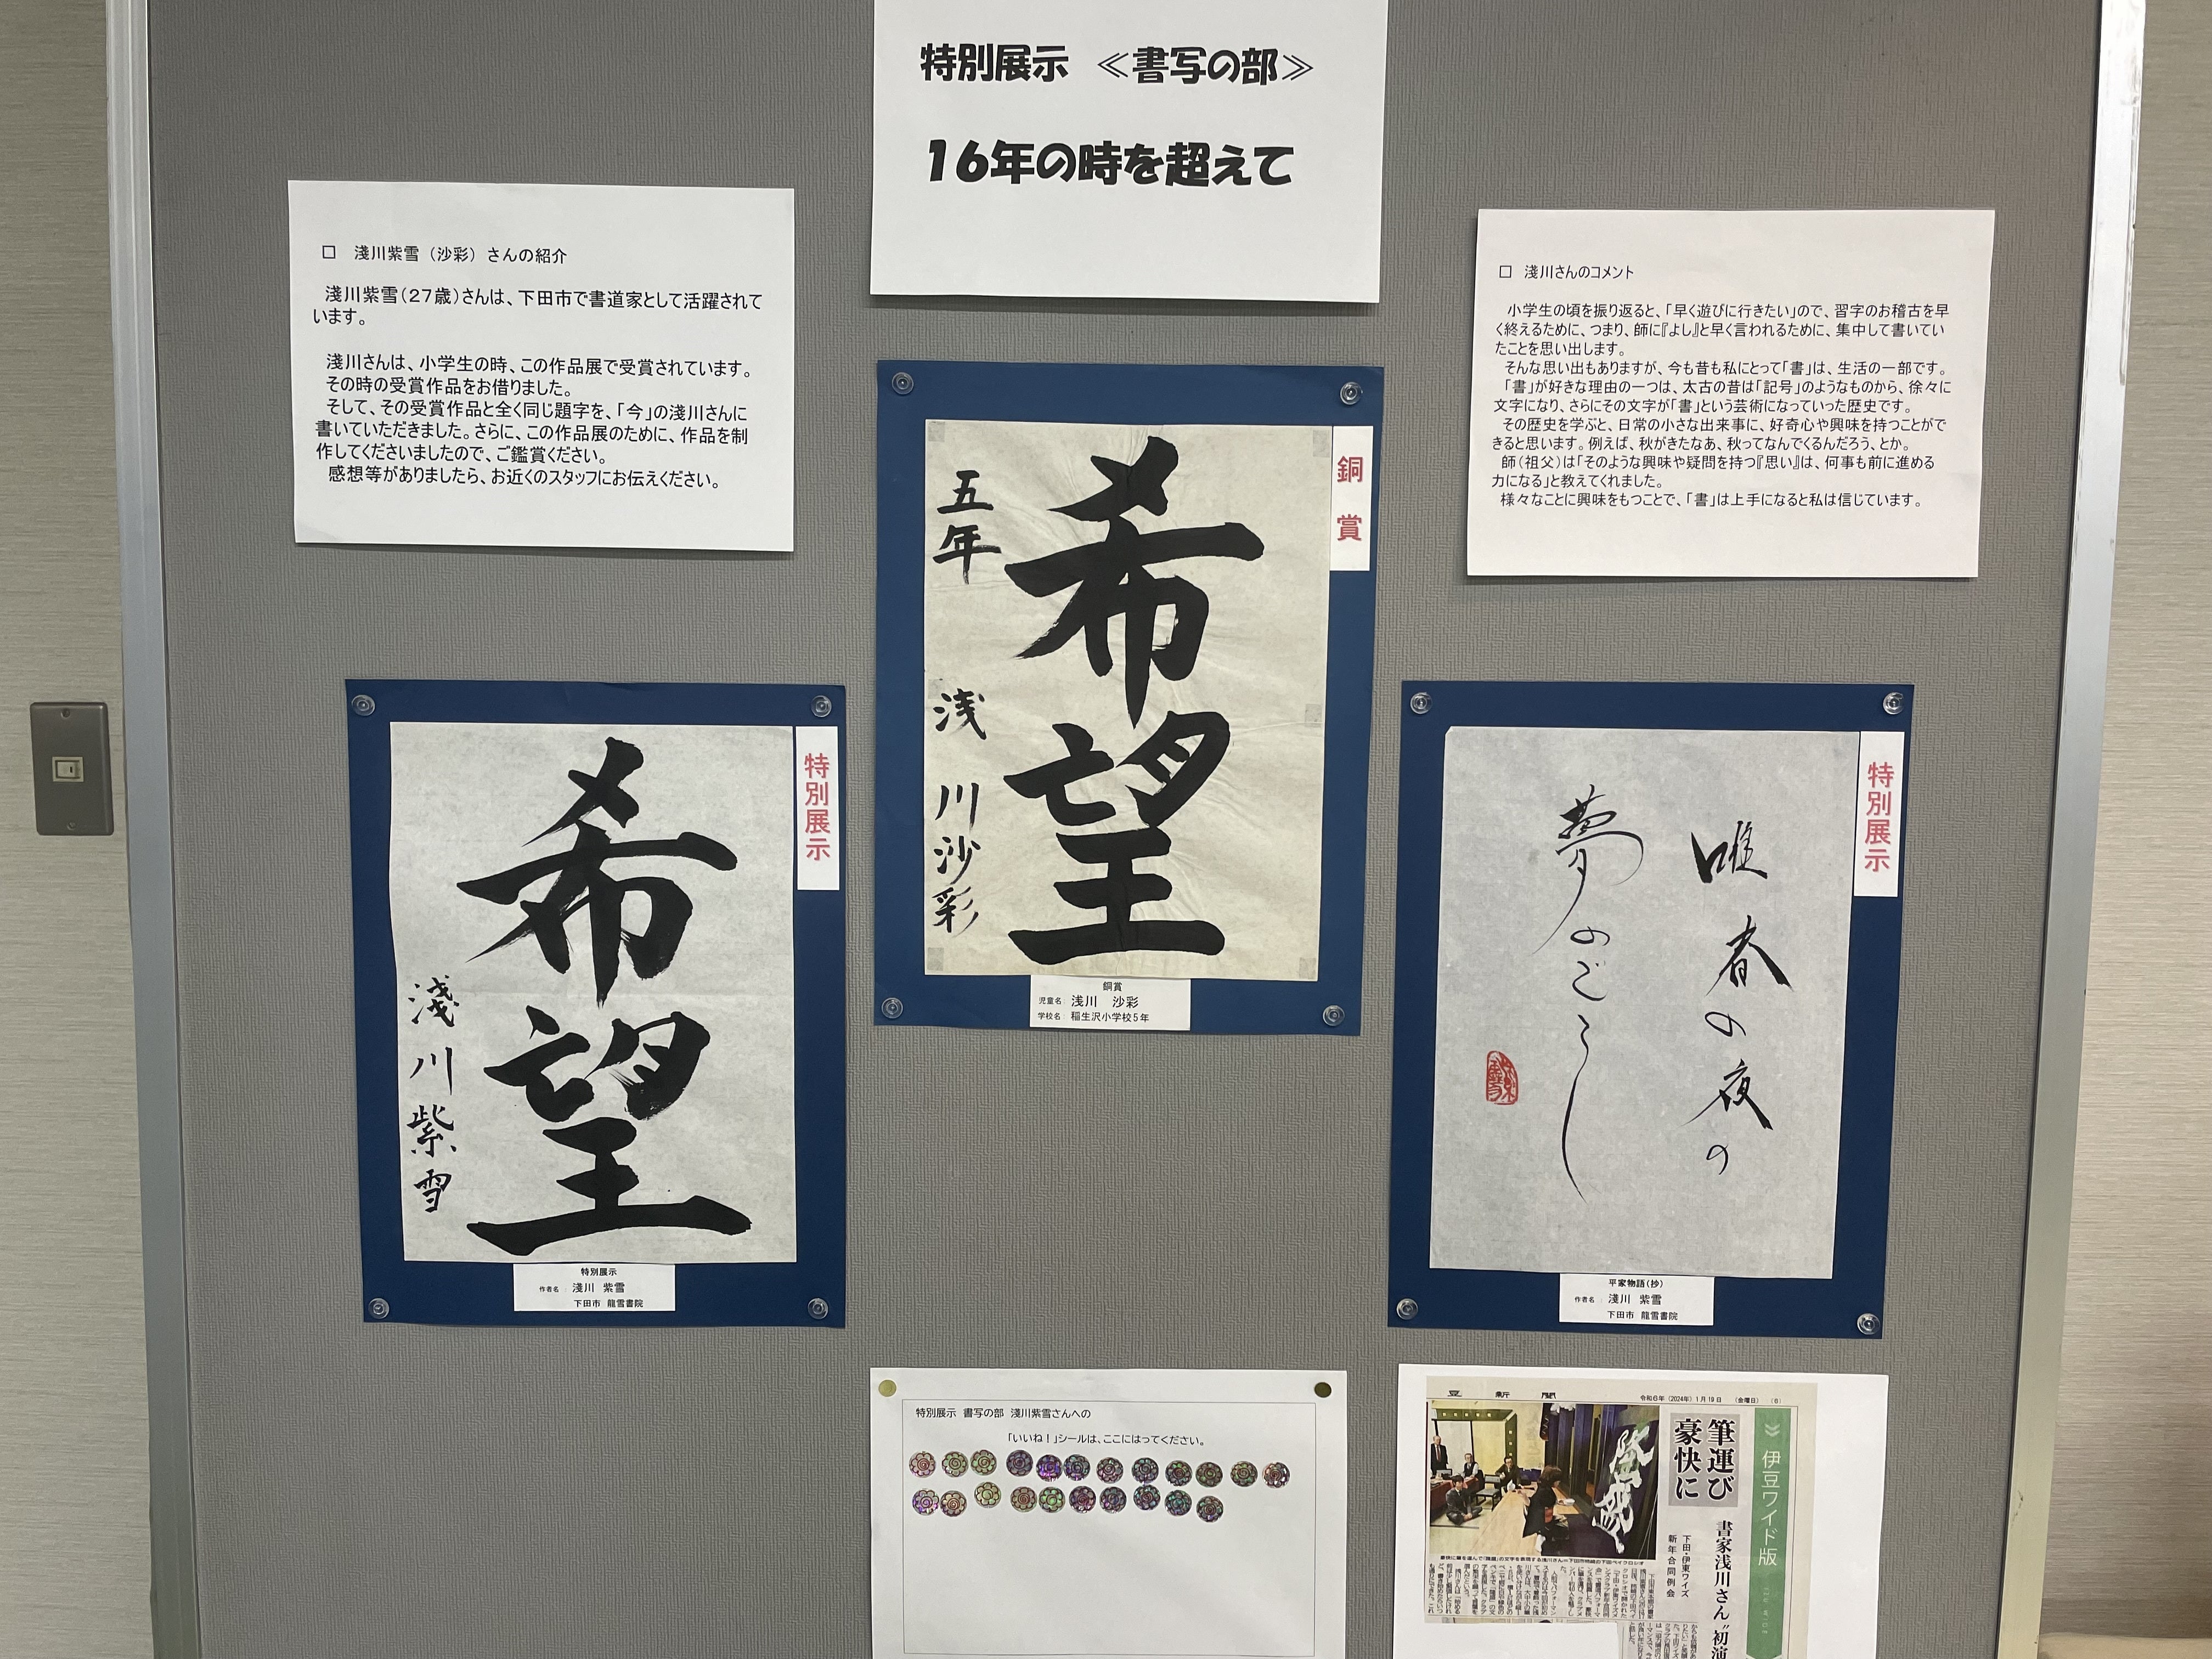 特別展示 ≪書写の部≫
16年の時を超えて
□ 淺川紫雪（沙彩）さんの紹介
淺川紫雪（27歳）さんは、下田市で書道家として活躍されて
います。
淺川さんは、小学生の時、この作品展で受賞されています。
その時の受賞作品をお借りました。
そして、その受賞作品と全く同じ題字を、「今」の淺川さんに
書いていただきました。さらに、この作品展のために、作品を制
作してくださいましたので、ご鑑賞ください。
感想等がありましたら、お近くのスタッフにお伝えください。
□ 淺川さんのコメント
小学生の頃を振り返ると、「早く遊びに行きたい」ので、習字のお稽古を早
く終えるために、つまり、師に『よし』と早く言われるために、集中して書いてい
たことを思い出します。
そんな思い出もありますが、今も昔も私にとって「書」は、生活の一部です。
「書」が好きな理由の一つは、太古の昔は「記号」のようなものから、徐々に
文字になり、さらにその文字が「書」という芸術になっていった歴史です。
その歴史を学ぶと、日常の小さな出来事に、好奇心や興味を持つことがで
きると思います。例えば、秋がきたなあ、秋ってなんでくるんだろう、とか。
師（祖父）は「そのような興味や疑問を持つ『思い』は、何事も前に進める
力になる」と教えてくれました。
様々なことに興味をもつことで、「書」は上手になると私は信じています。
銅賞
希望
五年 浅川沙彩
銅賞
児童名： 浅川 沙彩
学校名： 稲生沢小学校5年
特別展示
希望
淺川紫雪
特別展示
作者名： 淺川 紫雪
下田市 龍雪書院
特別展示
唯春の夜の
夢のごとし
平家物語（抄）
作者名： 淺川 紫雪
下田市 龍雪書院
特別展示 書写の部 淺川紫雪さんへの
「いいね！」シールは、ここにはってください。
豆新聞
令和6年（2024年）1月19日 （金曜日） （6）
伊豆ワイド版
IZU WIDE
筆運び
豪快に
書家浅川さん〝初演
下田・伊東ワイズ
新年合同例会